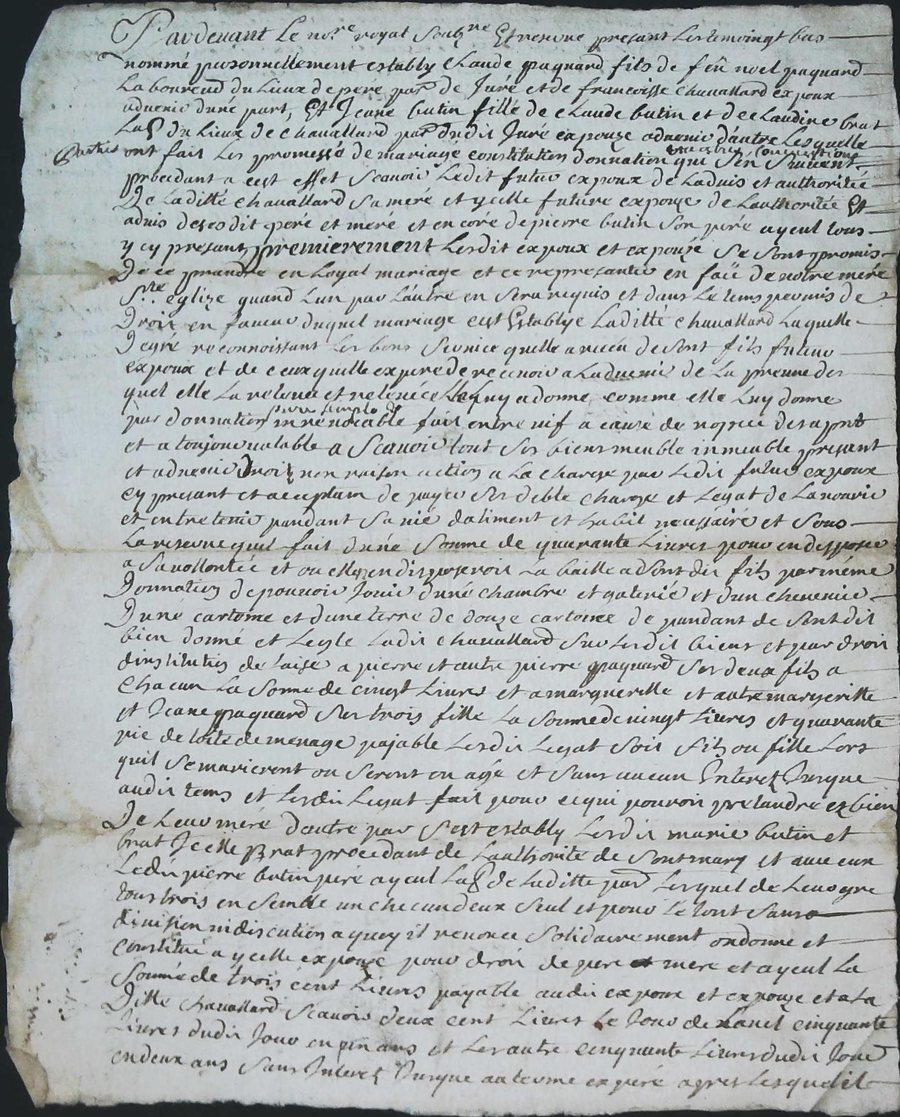 Pardevant Le no.re royal Soub.né Et en presant Les temoingt bas
nommé personnellement estably Claude paquard fils de feû noel paquard
Laboureud du Lieux de pere par. de Juré et de francoisse chavallard expoux
advenir dune part, Et Jeane butin fillé de claude butin et de claudine brat
Lab. du Lieux de chavallard par. dudit Juré expouze advenir dautre Lesquelle
parties ont fait Les promessé de mariagé constitution donnation qui Sen Suivent
procedant a cest effet Scavoir Ledit futur expoux de Ladvis et authoritié
De Laditté chavallard Sa meré et ycelle future expouse de Lauthoritié Et
advis de sesdit peré et meré et encore de pierre butin Son peré ayeul tous
y cy presant, premierement Lesdit expoux et expouze Se Sont promis
De ce prandre en Loyal mariage et ce representer en facê de notre meré
S.te eglize quand Lun par Lautre en Sera requis et dans Le tems permis de
Droit en faveur duquel mariage cest Establye Laditté chavallard Laquelle
De gre reconnoissant Les bons Service quelle a receu de Sont fils futur
expoux et de ceux quelle expere de recevoir a Ladvenir de La preuve des
quel elle La relevé et relevé elle Luy a donné, comme elle Luy donne
par donnation pure simple irrévocable fait entre vif a cause de nopce des a prêt
et a toujour valable a Scavoir tout Ses biens meuble immeuble presant
et advenir Droit nom raison action a La charge par Ledit futur expoux
cy presant et acceptant de payer Ses debte charge et Legat de La nourir
et entretenir pandant Sa vié daliment et habit necessairé et Sous
La reserve quil fait duné Sommé de quarante Livres pour en disposer
a Sa vollontée et ou elle nen disposeroit La baille a Sont dit fils par mémé
Donnation de pouvoir Jouir duné chambre et galerié et dun chenevier
Duné cartonne et duné terre de douze cartonne de pandant de Sont dit
bien donné et Legle Ladit chavallard Sur Lesdit bient et par droit
dinstitution de Laise a pierre et autre pierre paquard Ses deux fils a
Chacun La Somme de cinqt Livre et a margueritte et autre margueritte
et Jeane paquard Ses trois fille La Somme de vingt Livres et quarante
pie de toile de menage payable Lesdit Legat Soit fils ou fille Lors
quil Se marieront ou Seront en agé et Sans aucun Interet Jusque
audit tems et Lesdit Legat fait pour ce qui pouvoit pretandre es bien
De Leur mere dautre par Sest estably Lesdit marié butin et
brat Jcelle Brat procedant de Lauthorité de Sont mary et avec eux
Ledit pierre butin pere ayeul Lab. de Laditte par. Lesquel de Leur gre
tous trois en Semble un checun deux Seul et pour Le tout Sans
division ni discution a quoy il renonce Solidairement ondonne et
Constitué a ycelle expouse pour droit de pere et mere et ayeul La
Sommé de trois cent Livres payable audit expoux et expouze et a La
Ditte Chavallard Scavoir deux cent Livres Le Jour de Lanel cinquante
Livres dudit Jour en un ans et Les autre cinquante Livres dudit Jour
en deux ans Sans Interet Jusque au terme experé apres Lesquel il